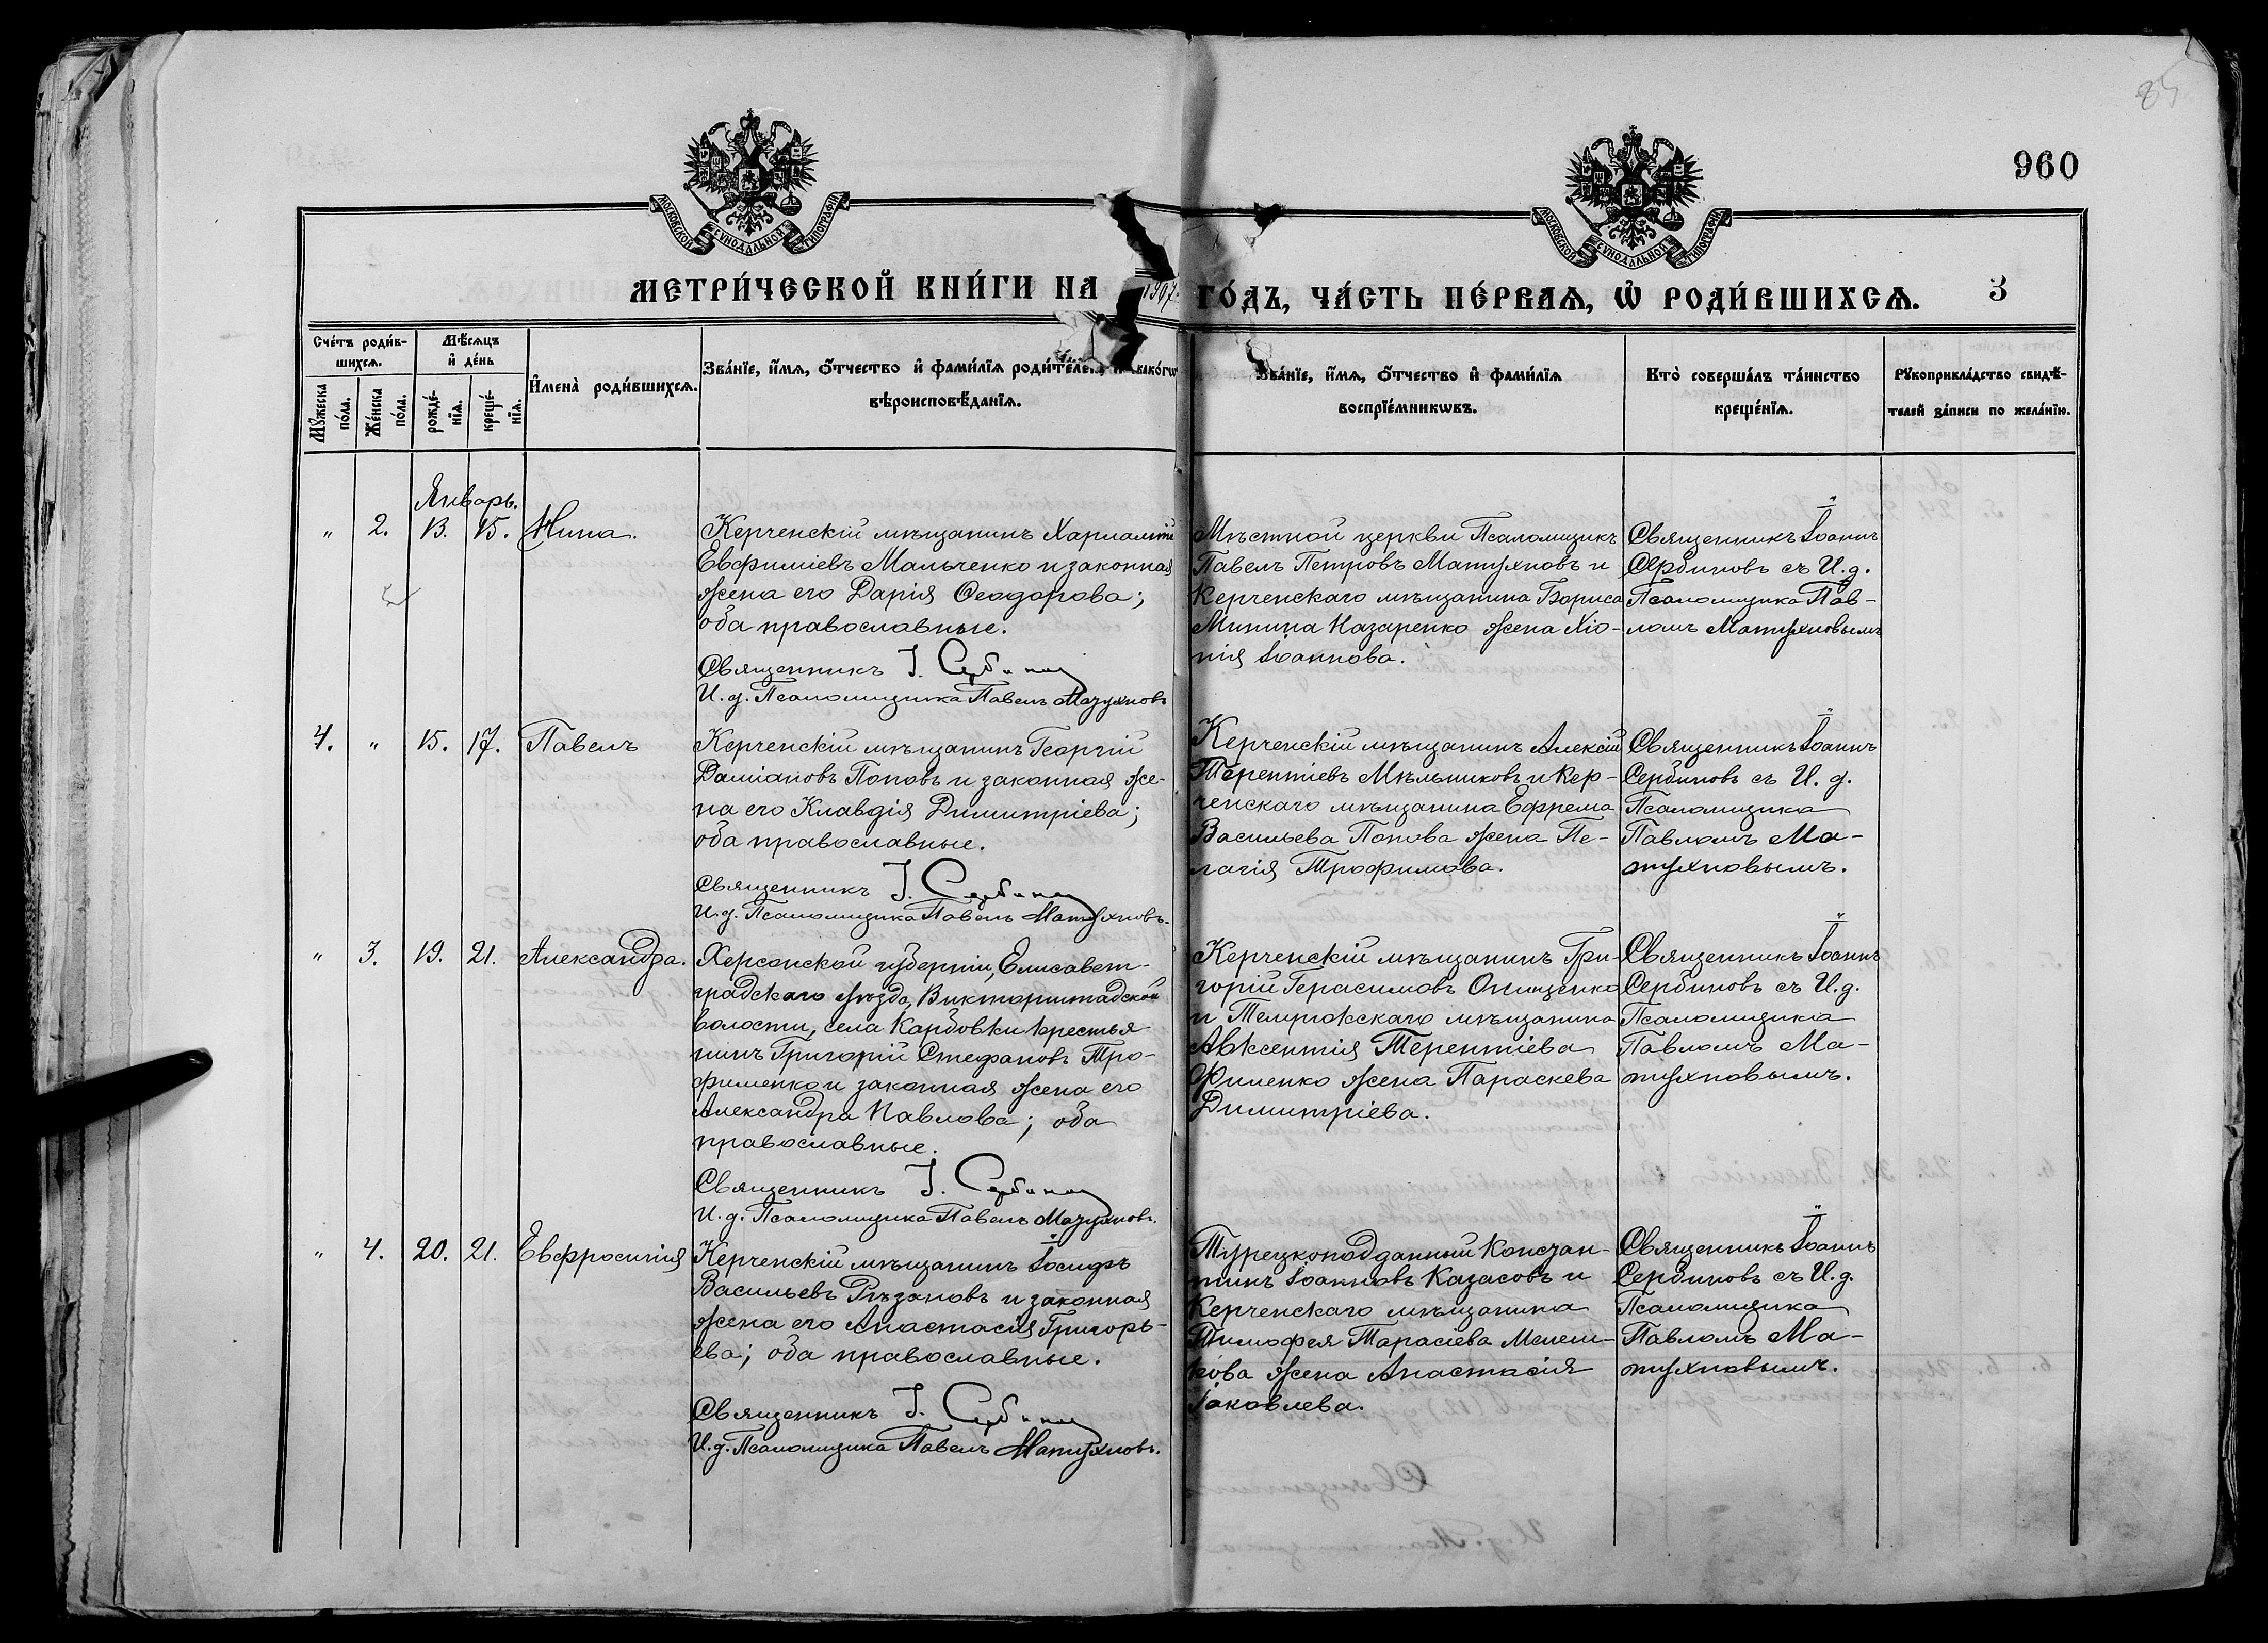 960
МОСКОВСКОЙ СУНОДАЛЬНОЙ ТИПОГРАФІИ
МОСКОВСКОЙ СУНОДАЛЬНОЙ ТИПОГРАФІИ
МЕТРИ́ЧЕСКОЙ КНИ́ГИ НА 1907 ГО́ДЪ, ЧА́СТЬ ПЕ́РВАѦ, Ѡ҆ РОДИ́ВШИХСѦ. 3
Сче́тъ роди́в-
шихсѧ.
Мꙋ́жеска по́ла.
Же́нска по́ла.
Мѣ́сѧцъ
и҆ де́нь
рожде́-
нїѧ.
креще́-
нїѧ.
И҆мена̀ роди́вшихсѧ.
Зва́нїе, и҆́мѧ, ѻ҆́тчество и҆ фами́лїѧ роди́телей, и како́гѡ
вѣроисповѣ́данїѧ.
Зва́нїе, и҆́мѧ, ѻ҆́тчество и҆ фами́лїѧ
воспрїе́мникѡвъ.
Кто̀ соверша́лъ та́инство
креще́нїѧ.
Рꙋкоприкла́дство свидѣ́-
телей за́писи по жела́нїю.
Январь.
" 2. 13. 15. Нина.
Керченскій мѣщанинъ Харлампій
Евфиміевъ Мальченко и законная
жена его Дарія Ѳеодорова;
оба православные.
Священникъ І. Сербинов
И. д. Псаломщика Павелъ Матухновъ
Мѣстной церкви Псаломщикъ
Павелъ Петровъ Матухновъ и
Керченскаго мѣщанина Бориса
Минина Назаренко жена Хіо-
нія Іоаннова.
Священникъ Іоаннъ
Сербиновъ съ И. д.
Псаломщика Пав-
ломъ Матухновымъ
4. " 15. 17. Павелъ
Керченскій мѣщанинъ Георгій
Даміановъ Поповъ и законная же-
на его Клавдія Димитріева;
оба православные.
Священникъ І. Сербинов
И. д. Псаломщика Павелъ Матухновъ.
Керченскій мѣщанинъ Алексій
Терентіевъ Мѣльниковъ и Кер-
ченскаго мѣщанина Ефрема
Васильева Попова жена Пе-
лагія Трофимова.
Священникъ Іоаннъ
Сербиновъ съ И. д.
Псаломщика
Павломъ Ма-
тухновымъ.
" 3. 19. 21. Александра.
Херсонской губерніи, Елисавет-
градскаго уѣзда, Викторштадской
волости, села Карбовки крестья-
нинъ Григорій Стефановъ Тро-
фименко и законная жена его
Александра Павлова; оба
православные.
Священникъ І. Сербинов
И. д. Псаломщика Павелъ Матухновъ.
Керченскій мѣщанинъ Гри-
горій Герасимовъ Онищенко
и Темрюкскаго мѣщанина
Авксентія Терентіева
Филенко жена Параскева
Димитріева.
Священникъ Іоаннъ
Сербиновъ съ И. д.
Псаломщика
Павломъ Ма-
тухновымъ.
" 4. 20. 21. Евфросинія
Керченскій мѣщанинъ Іосифъ
Васильевъ Рѣзановъ и законная
жена его Анастасія Григорь-
ева; оба православные.
Священникъ І. Сербинов
И. д. Псаломщика Павелъ Матухновъ.
Турецкоподданный Констан-
тинъ Іоанновъ Казасовъ и
Керченскаго мѣщанина
Тимофея Тарасіева Мелеш-
кова жена Анастасія
Іаковлева.
Священникъ Іоаннъ
Сербиновъ съ И. д.
Псаломщика
Павломъ Ма-
тухновымъ.